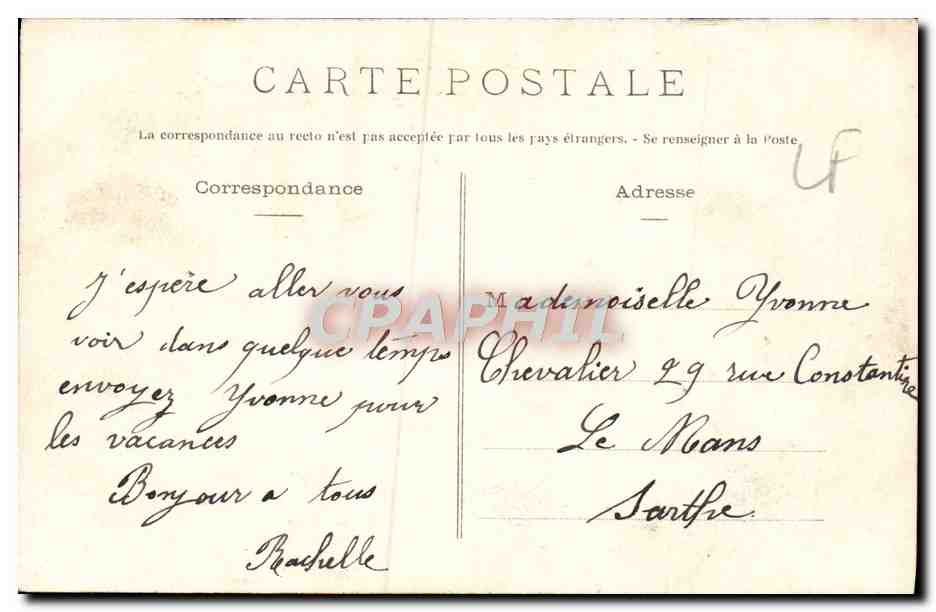 CARTE POSTALE
La correspondance au recto n'est pas acceptée par tous les pays étrangers. - Se renseigner à la Poste
Correspondance
J'espère aller vous
voir dans quelque temps
envoyez Yvonne pour
les vacances
Bonjour a tous
Rachelle
Adresse
Mademoiselle Yvonne
Chevalier 29 rue Constantine
Le Mans
Sarthe
CPAPHIL